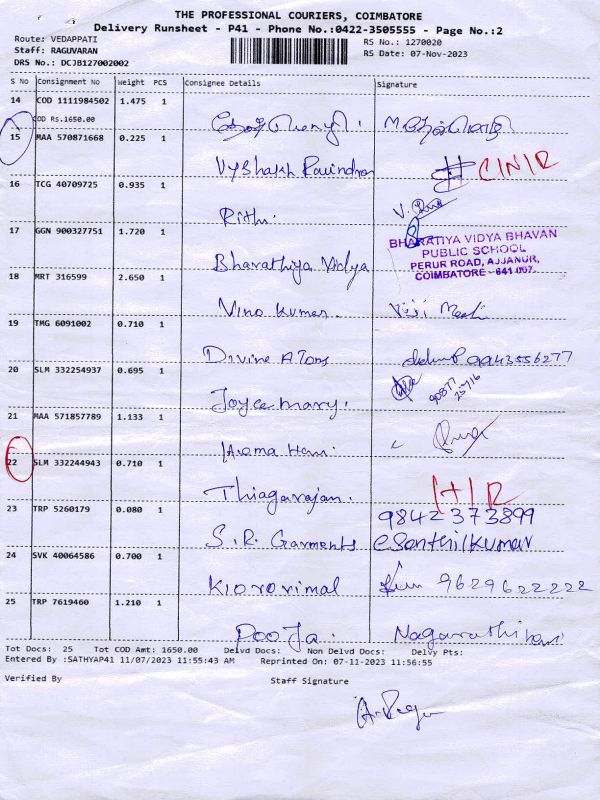 THE PROFESSIONAL COURIERS, COIMBATORE
Delivery Runsheet - P41 - Phone No.:0422-3505555 - Page No.:2
Route: VEDAPPATI RS No.: 1270020
Staff: RAGUVARAN RS Date: 07-Nov-2023
DRS No.: DCJB127002002
S No Consignment No Weight PCS Consignee Details Signature
14 COD 1111984502 1.475 1
COD Rs.1650.00
15 MAA 570871668 0.225 1
Vyshakh Ravindran C/N/R
16 TCG 40709725 0.935 1
Rithi V.
17 GGN 900327751 1.720 1
BHARATIYA VIDYA BHAVAN
PUBLIC SCHOOL
Bharathiya Vidya PERUR ROAD, AJJANUR,
18 MRT 316599 2.650 1 COIMBATORE - 641 007.
Vino Kumar.
19 TMG 6091002 0.710 1
Divine A 9943556277
20 SLM 332254937 0.695 1
Joyce mary. 90877
25716
21 MAA 571857789 1.133 1
22 SLM 332244943 0.710 1
Thiagarajan.
23 TRP 5260179 0.080 1 9842373899
S.R. Garments C Senthilkumar
24 SVK 40064586 0.700 1
9629622222
25 TRP 7619460 1.210 1
Pooja.
Tot Docs: 25 Tot COD Amt: 1650.00 Delvd Docs: Non Delvd Docs: Delvy Pts:
Entered By :SATHYAP41 11/07/2023 11:55:43 AM Reprinted On: 07-11-2023 11:56:55
Verified By Staff Signature